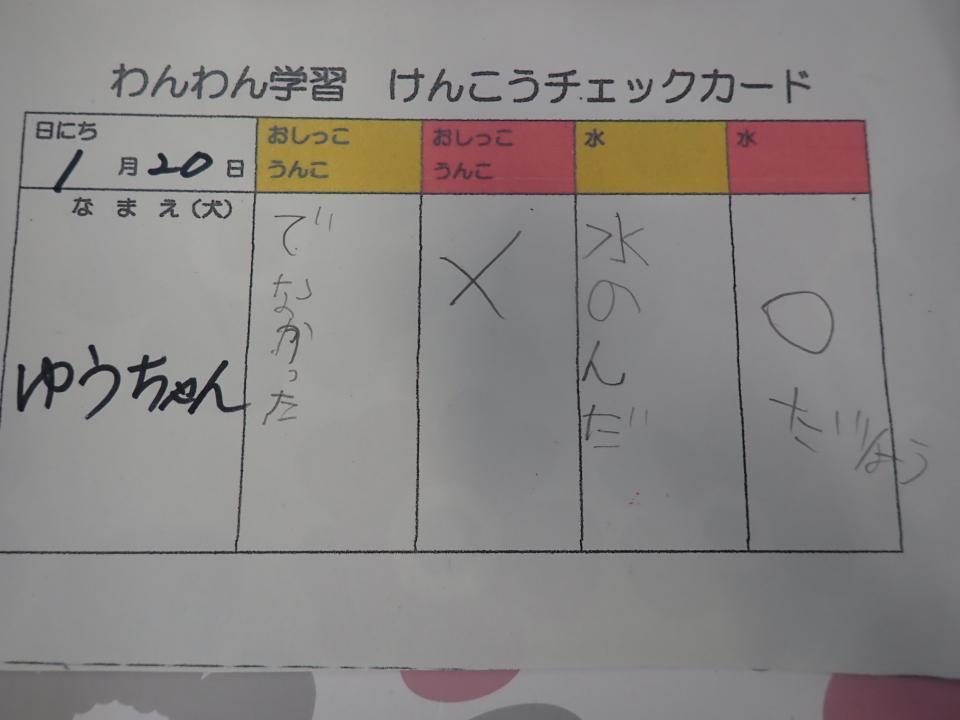 わんわん学習 けんこうチェックカード
日にち
1月20日
おしっこ
うんこ
おしっこ
うんこ
水
水
なまえ(犬)
ゆうちゃん
でなかった
×
水のんだ
○